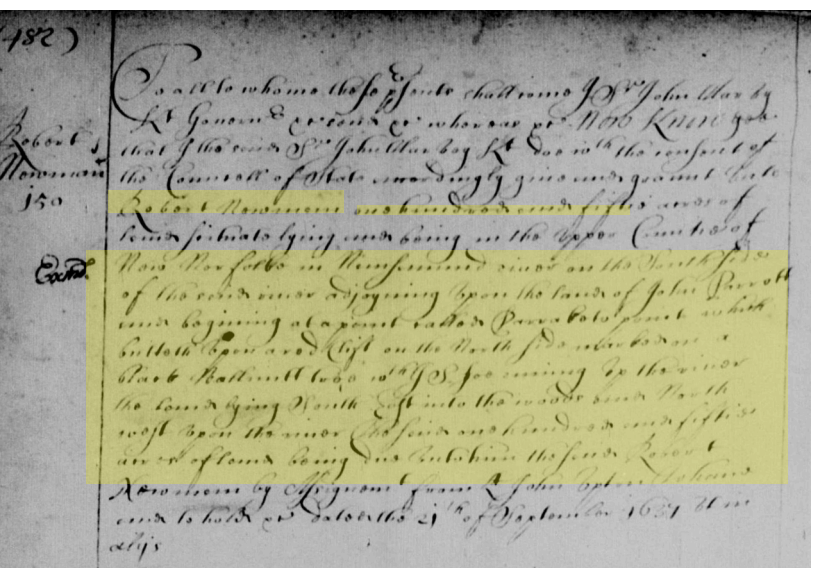 (482)
Robert
Newman
150
Exam.d
To all to whome these psents shall come I Sr. John Harvey
Kt. Governr. &c send &c whereas &c Now Know yee
that I the said Sr. John Harvey Kt. doe wth the consent of
the Councell of State accordingly give and graunt unto
Robert Newman one hundred and fiftie acres of
land scituate lying and being in the upper Countie of
New Norfolke in Nansemund river on the South side
of the said river adjoyning upon the land of John Parrott
and begining at a point called Parraketo point which
butteth upon a red Clift on the North side marked on a
black Wallnutt tree wth I S. runing up the river
the land lying South East into the woods and North
west upon the river the said one hundred and fiftie
acres of land being due unto him the said Robert
Newman by Assignemt. from John Upton To have
and to hold &c dated the 21th of September 1637 ut in
alijs